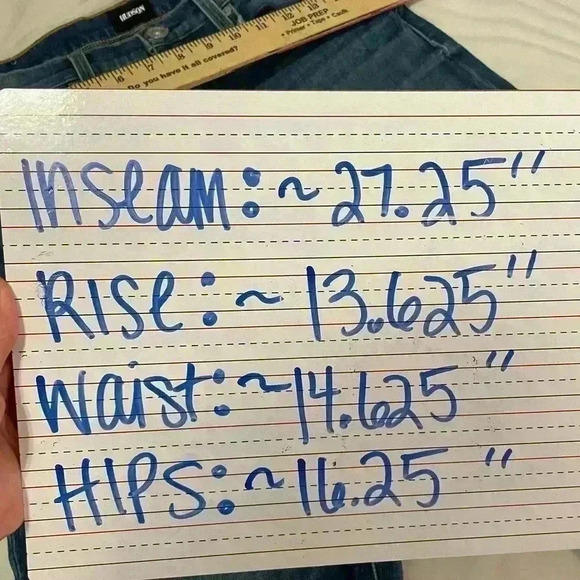 HUDSON
6 7 8 9 10 11 12 13
JOB PREP
• Primer • Tape • Caulk
Do you have it all covered?
Inseam: ~ 27.25"
Rise: ~ 13.625"
Waist: ~ 14.625"
HIPS: ~ 16.25"